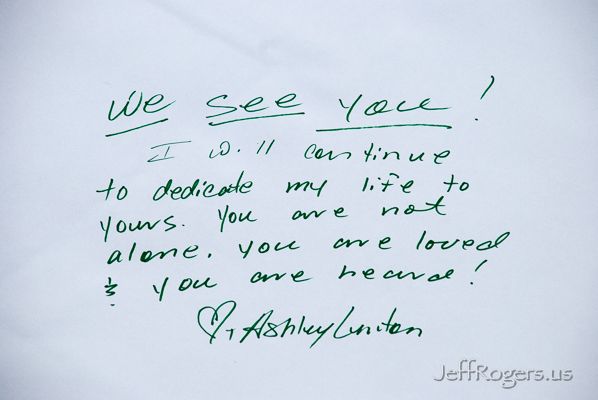 We see you!
I will continue
to dedicate my life to
yours. You are not
alone. You are loved
& you are heard!
♡, Ashley
JeffRogers.us